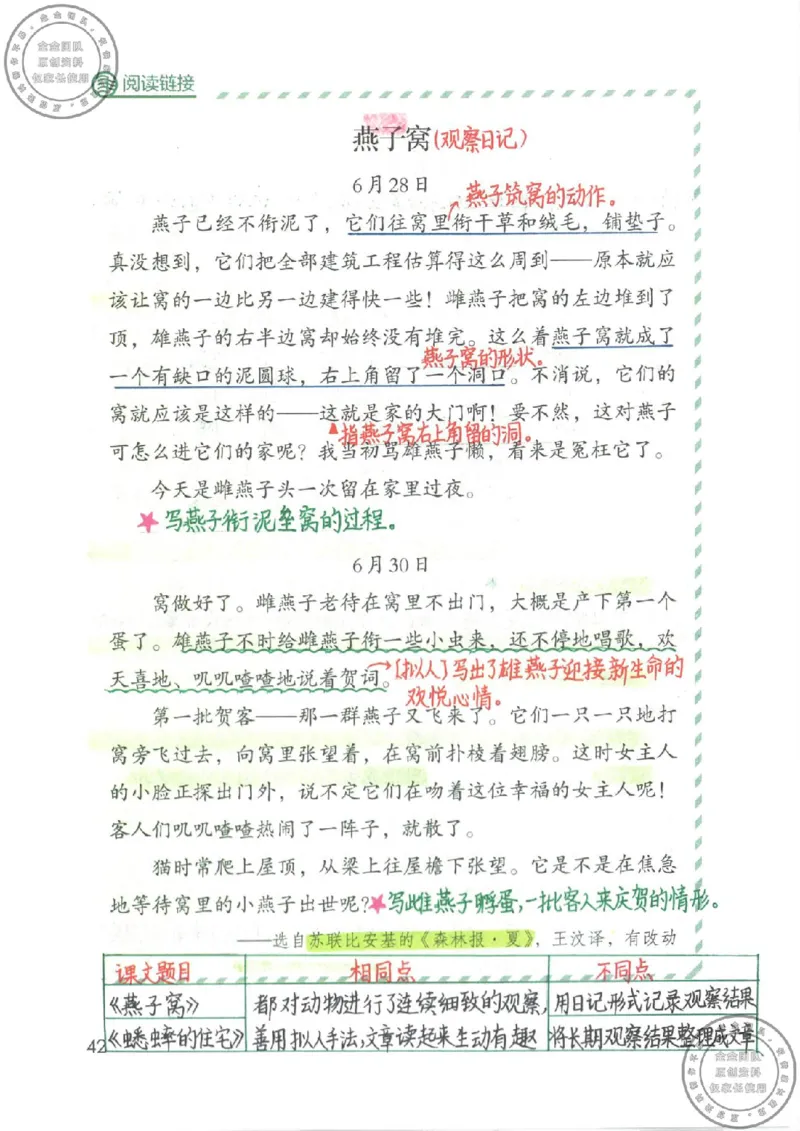 金金团队
原创资料
仅家长使用
阅读链接
燕子窝(观察日记)
6月28日
燕子筑窝的动作。
燕子已经不衔泥了，它们往窝里衔干草和绒毛，铺垫子。
真没想到，它们把全部建筑工程估算得这么周到——原本就应
该让窝的一边比另一边建得快一些！雌燕子把窝的左边堆到了
顶，雄燕子的右半边窝却始终没有堆完。这么着燕子窝就成了
燕子窝的形状。
一个有缺口的泥圆球，右上角留了一个洞口。不消说，它们的
窝就应该是这样的——这就是家的大门啊！要不然，这对燕子
▲指燕子窝右上角留的洞。
可怎么进它们的家呢？我当初骂雄燕子懒，看来是冤枉它了。
今天是雌燕子头一次留在家里过夜。
★写燕子衔泥垒窝的过程。
6月30日
窝做好了。雌燕子老待在窝里不出门，大概是产下第一个
蛋了。雄燕子不时给雌燕子衔一些小虫来，还不停地唱歌，欢
天喜地、叽叽喳喳地说着贺词。→[拟人]写出了雄燕子迎接新生命的
欢悦心情。
第一批贺客——那一群燕子又飞来了。它们一只一只地打
窝旁飞过去，向窝里张望着，在窝前扑棱着翅膀。这时女主人
的小脸正探出门外，说不定它们在吻着这位幸福的女主人呢！
客人们叽叽喳喳热闹了一阵子，就散了。
猫时常爬上屋顶，从梁上往屋檐下张望。它是不是在焦急
地等待窝里的小燕子出世呢？★写雌燕子孵蛋,一批客人来庆贺的情形。
——选自苏联比安基的《森林报·夏》，王汶译，有改动
课文题目 相同点 不同点
《燕子窝》 都对动物进行了连续细致的观察, 用日记形式记录观察结果
42 《蟋蟀的住宅》 善用拟人手法,文章读起来生动有趣 将长期观察结果整理成文章
金金团队
原创资料
仅家长使用